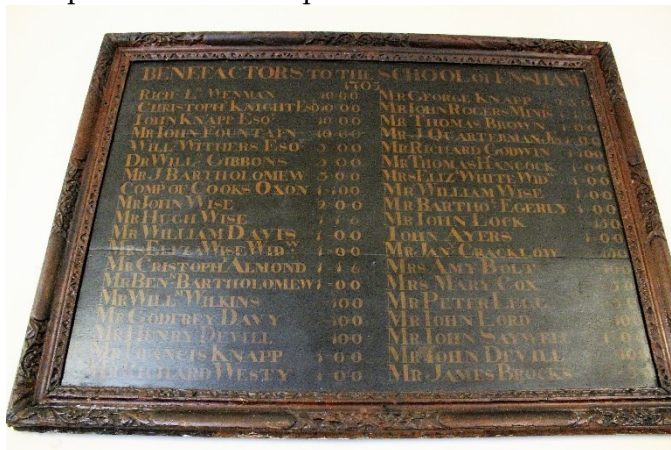 BENEFACTORS TO THE SCHOOL of ENSHAM
1703
RICH.D L.D WENMAN 10·0·0
CHRISTOPH.R KNIGHT ESQ 10·0·0
IOHN KNAPP ESQ.R 10·0·0
MR IOHN FOUNTAIN 10·0·0
WILL.M WETHERS ESQ 5·0·0
DR WILL.M GIBBONS 5·0·0
MR J BARTHOLOMEW 5·0·0
COMP.Y OF COOKS OXON
MR IOHN WISE 2·0·0
MR HUGH WISE 1·1·6
MR WILLIAM DAVIS 1·0·0
MRS ELIZA WISE WID.W 1·0·0
MR CRISTOPH.R ALMOND 1·1·6
MR BEN.N BARTHOLOMEW 1·0·0
MR WILL.M WILKINS 10·0
MR GODFREY DAVY 10·0
MR HENRY DEVILL 10·0
MR FRANCIS KNAPP 1·0·0
RICHARD WESTY 1·0·0
MR GEORGE KNAPP
MR IOHN ROGERS MINIS.R
MR THOMAS BROWN 1·0·0
MR J QUARTERMAN J.R 1·0·0
MR RICHARD GODWIN
MR THOMAS HANCOCK 1·0·0
MRS ELIZ WHITE WID 1·0·0
MR WILLIAM WISE 1·0·0
MR BARTHO.W EGERLY 1·0·0
MR IOHN LOCK 15·0
IOHN AYERS 1·0·0
MR JAN.S CRACKLOW
MRS AMY BOLT 10·0
MRS MARY COX
MR PETER LEGE
MR IOHN LORD
MR IOHN SAYWELL
MR IOHN DEVILL
MR JAMES BROCKS